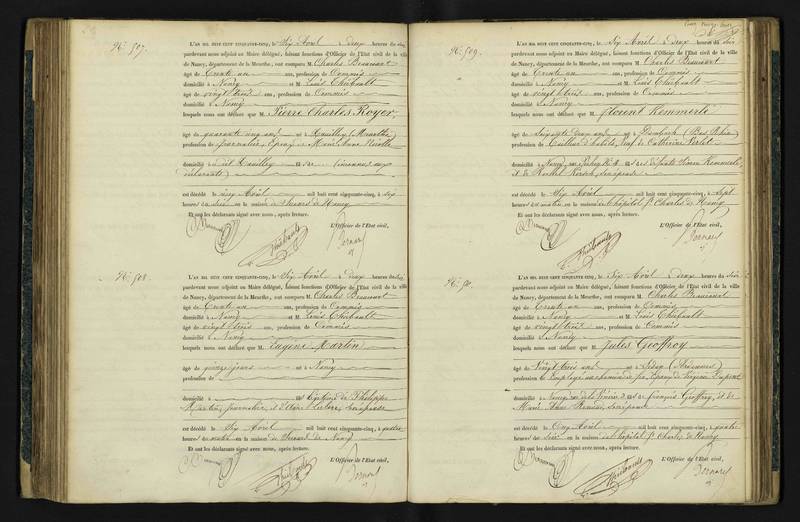 N.º 507.
L'AN MIL HUIT CENT CINQUANTE-CINQ, le Six Avril à deux heures du soir,
pardevant nous adjoint au Maire délégué, faisant fonctions d'Officier de l'État civil de la ville
de Nancy, département de la Meurthe, ont comparu M. Charles Beaucourt
âgé de Trente un ans, profession de Commis
domicilié à Nancy et M. Louis Thiébault
âgé de vingt trois ans, profession de Commis
domicilié à Nancy
lesquels nous ont déclaré que M. Pierre Charles Royer,
âgé de quarante cinq ans né à (Meurthe)
profession de journalier, Epoux de Marie Anne
domicilié à fils (inconnus aux
déclarants)
est décédé le Six Avril mil huit cent cinquante-cinq, à six
heures du en la maison de Secours de Nancy
Et ont les déclarants signé avec nous, après lecture.
L'Officier de l'État civil,
Thiébault
Bernard
N.º 508.
L'AN MIL HUIT CENT CINQUANTE-CINQ, le Six Avril à deux heures du soir
pardevant nous adjoint au Maire délégué, faisant fonctions d'Officier de l'État civil de la ville
de Nancy, département de la Meurthe, ont comparu M. Charles Beaucourt
âgé de Trente un ans, profession de Commis
domicilié à Nancy et M. Louis Thiébault
âgé de vingt trois ans, profession de Commis
domicilié à Nancy
lesquels nous ont déclaré que M. Eugène Martin
âgé de quinze jours né à Nancy
profession de
domicilié à fils de Philippe
Martin, journalier, et d'
est décédé le Six Avril mil huit cent cinquante-cinq, à quatre
heures du matin en la maison de Secours de Nancy
Et ont les déclarants signé avec nous, après lecture.
L'Officier de l'État civil,
Thiébault
Bernard
N.º 509.
L'AN MIL HUIT CENT CINQUANTE-CINQ, le Six Avril à deux heures du soir,
pardevant nous adjoint au Maire délégué, faisant fonctions d'Officier de l'État civil de la ville
de Nancy, département de la Meurthe, ont comparu M. Charles Beaucourt
âgé de Trente un ans, profession de Commis
domicilié à Nancy et M. Louis Thiébault
âgé de vingt trois ans, profession de Commis
domicilié à Nancy
lesquels nous ont déclaré que M. Florent Kemmerlé
âgé de Soixante deux ans né à (Bas Rhin)
profession de d'habits, Veuf de Catherine
domicilié à Nancy, fils de Kemmerlé
et de
est décédé le Six Avril mil huit cent cinquante-cinq, à Sept
heures du matin en la maison de l'hôpital St. Charles de Nancy
Et ont les déclarants signé avec nous, après lecture.
L'Officier de l'État civil,
Thiébault
Bernard
L'AN MIL HUIT CENT CINQUANTE-CINQ, le Six Avril à deux heures du soir
pardevant nous adjoint au Maire délégué, faisant fonctions d'Officier de l'État civil de la ville
de Nancy, département de la Meurthe, ont comparu M. Charles Beaucourt
âgé de Trente un ans, profession de Commis
domicilié à Nancy et M. Louis Thiébault
âgé de vingt trois ans, profession de Commis
domicilié à Nancy
lesquels nous ont déclaré que M. Jules Geoffroy
âgé de Vingt trois ans né à Sedan (Ardennes)
profession d'Employé au chemin de fer, Epoux de Virginie Dupont
domicilié à Nancy, fils de françois Geoffroy, et de
Marie
est décédé le Cinq Avril mil huit cent cinquante-cinq, à quatre
heures du soir en la maison de l'hôpital St. Charles de Nancy
Et ont les déclarants signé avec nous, après lecture.
L'Officier de l'État civil,
Thiébault
Bernard